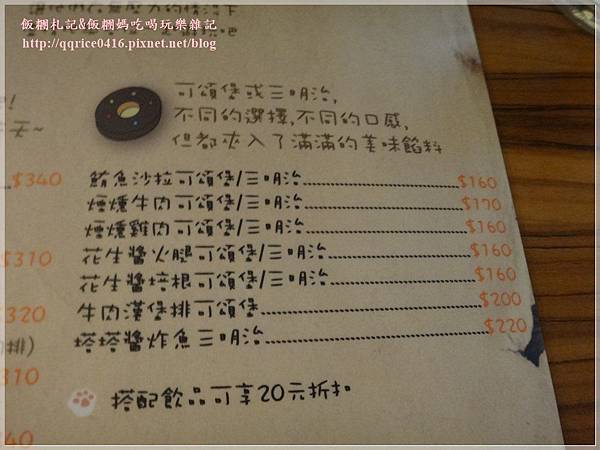 飯糰札記&飯糰媽吃喝玩樂雜記
http://qqrice0416.pixnet.net/blog
可頌堡或三明治,
不同的選擇,不同的口感,
但都夾入了滿滿的美味餡料
$340
鮪魚沙拉可頌堡/三明治 $160
煙燻牛肉可頌堡/三明治 $170
煙燻雞肉可頌堡/三明治 $160
$310
花生醬火腿可頌堡/三明治 $160
花生醬培根可頌堡/三明治 $160
$320
牛肉漢堡排可頌堡 $200
排)
塔塔醬炸魚三明治 $220
310
搭配飲品可享20元折扣
40